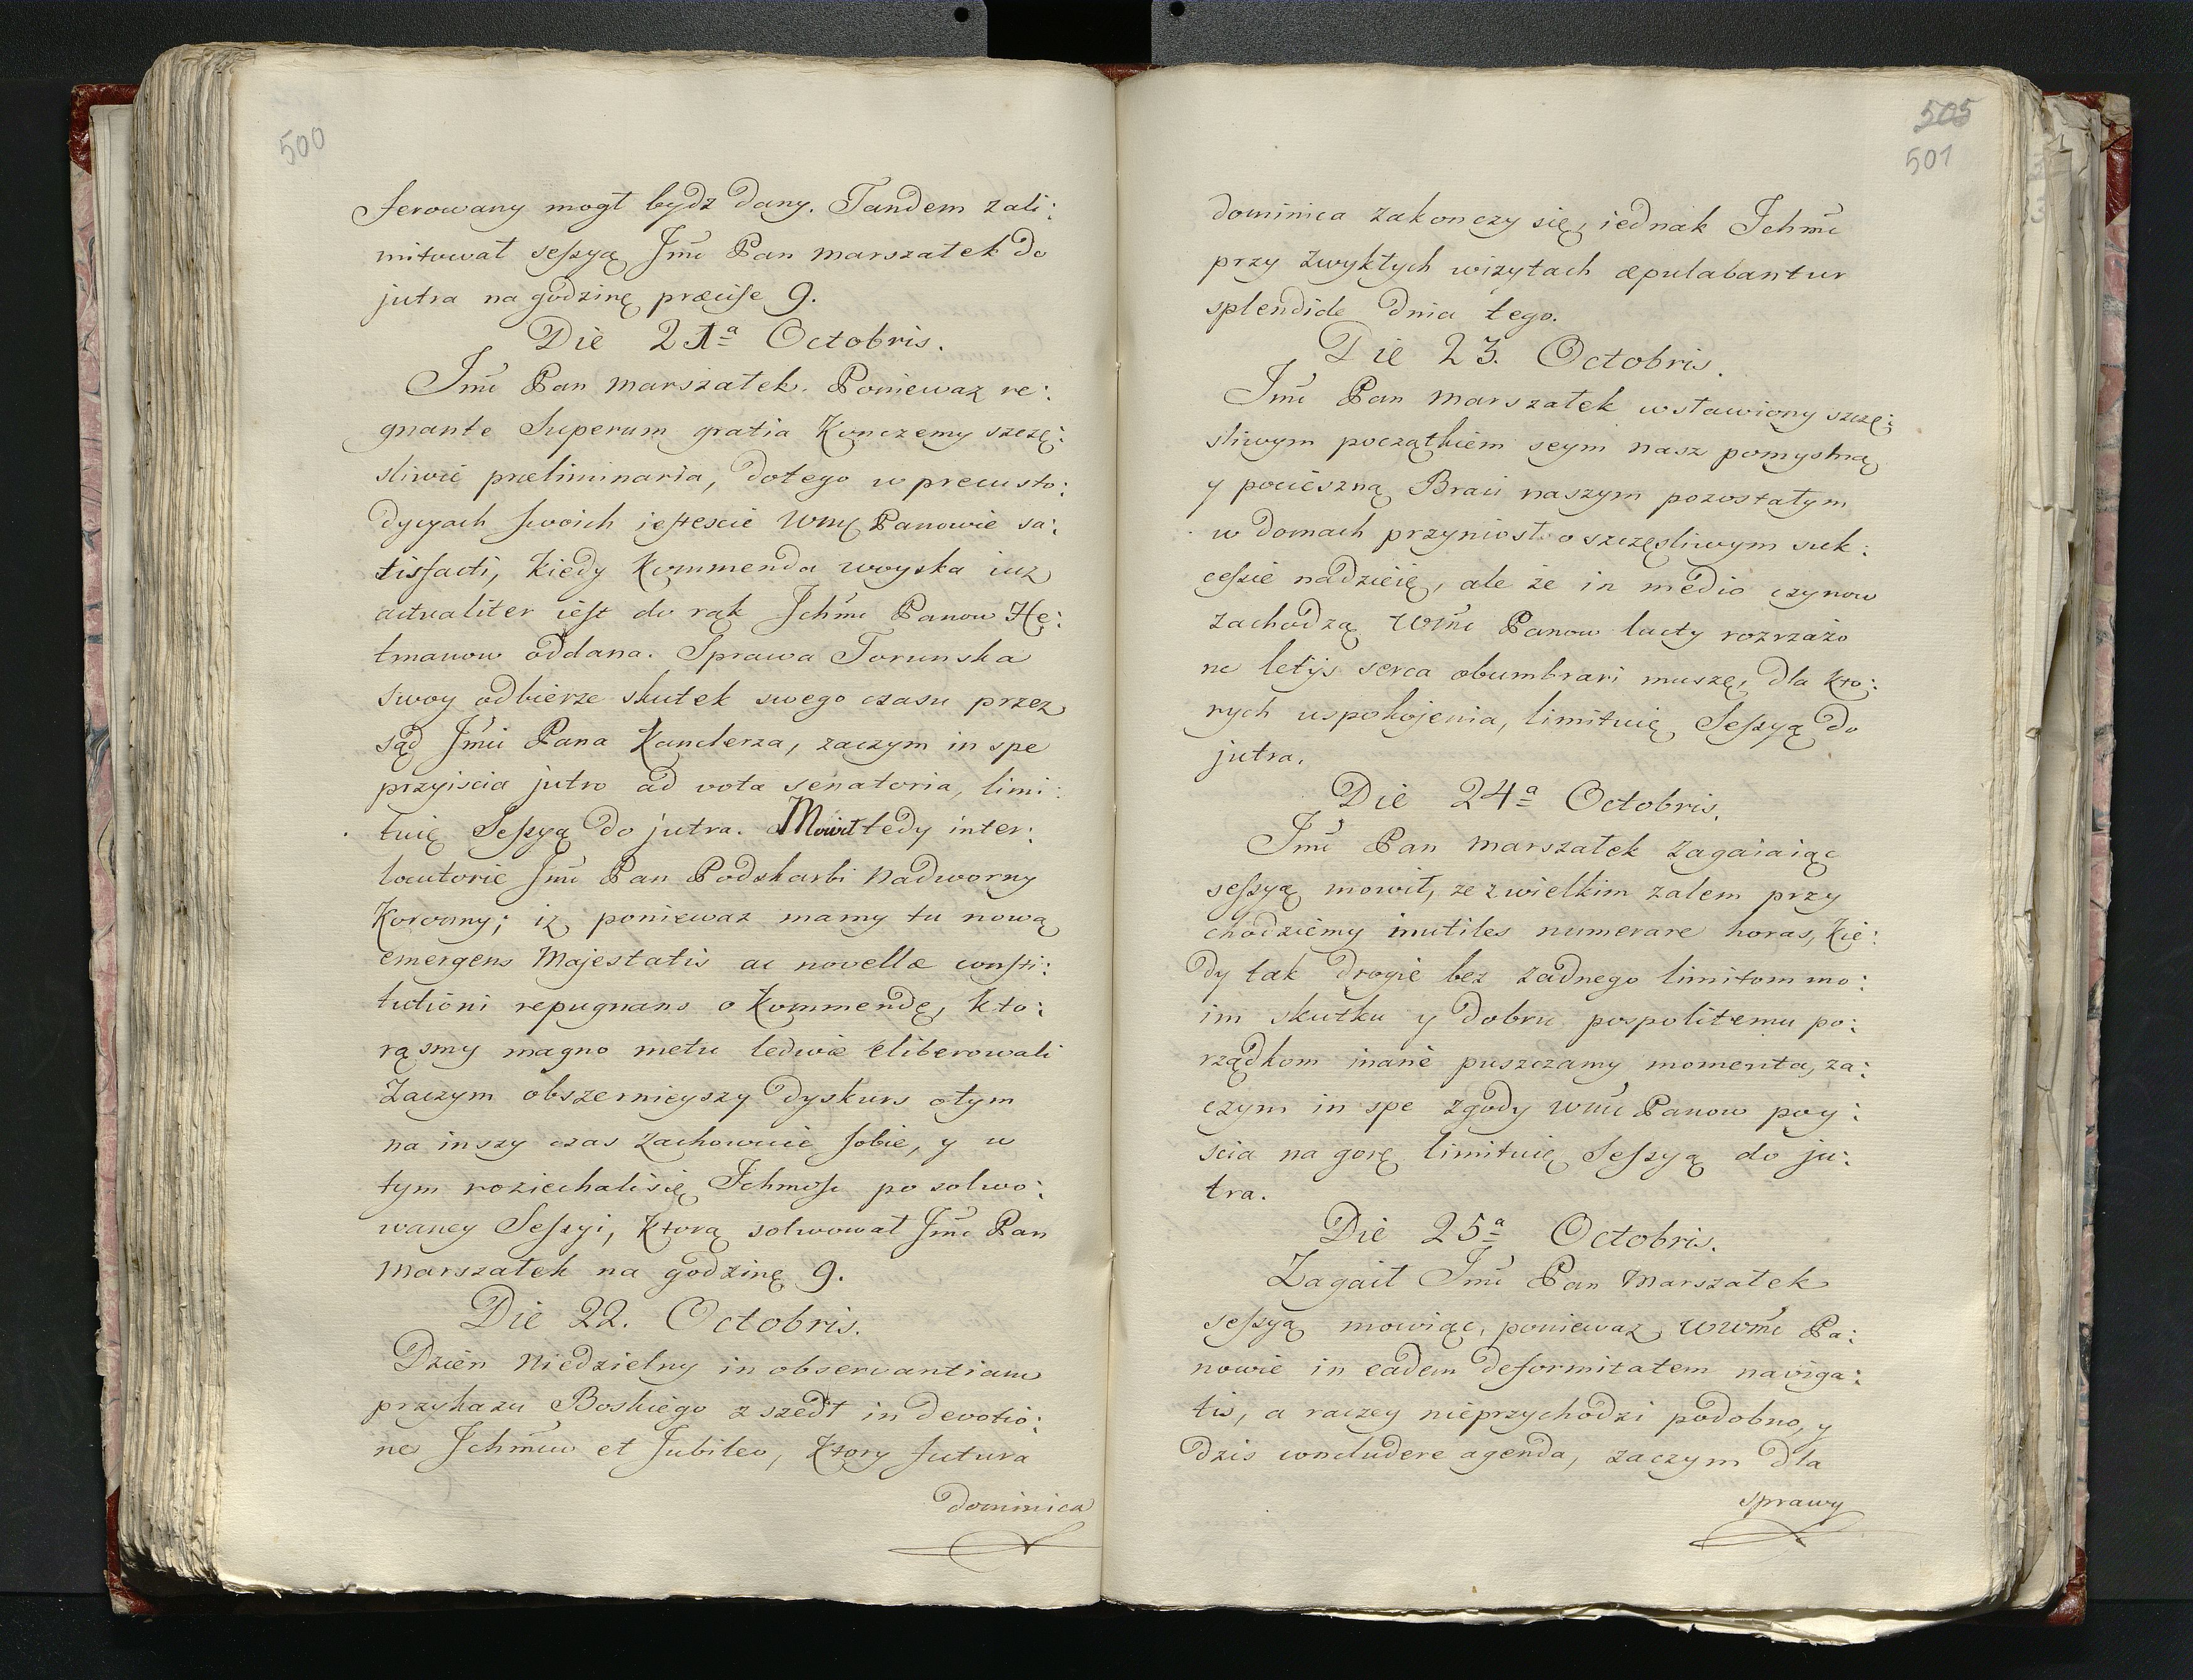 500
ferowany mogł bydz dany. Tandem zali:
mitował sessyą Jmć Pan Marszałek do
jutra na godzinę præcise 9.
Die 21ª Octobris.
Jmć Pan Marszałek. Poniewaz re:
gnante Superum gratia Konczemy szczę:
sliwie præliminaria, dotego w precusto:
dycyach swoich iestescie Wmć Panowie sa:
tisfacti, kiedy Kommenda woyska iuz
actualiter iest do rąk Ichmć Panow He:
tmanow oddana. Sprawa Torunska
swoy odbierze skutek swego czasu przez
sąd Jmci Pana Kanclerza, zaczym in spe
przyiscia jutro ad vota senatoria, limi:
tuię Sessyą do jutra. Mówił tedy inter:
locutorie Jmć Pan Podskarbi Nadworny
Koronny; iz poniewaz mamy tu nową
emergens Majestatis ac novellæ consti:
tutioni repugnans o Kommendę, kto:
rąsmy magno metu ledwie eliberowali
Zaczym obszernieyszy dyskurs otym
na inszy czas zachowuie sobie, y w
tym roziechalisię Ichmość po solwo:
waney Sessyi, ktorą solwował Jmć Pan
Marszałek na godzinę 9.
Die 22. Octobris.
Dzien Niedzielny in observantiam
przykazu Boskiego zszedł in devotio:
ne Ichmciow et Jubileo, ktory futura
dominica
505
501
dominica zakonczy się, iednak Ichmć
przy zwykłych wizytach æpulabantur
splendide dnia tego.
Die 23. Octobris.
Jmć Pan Marszałek wstawiony szczę:
sliwym początkiem seym nasz pomyslną
y pocieszną Braci naszym pozostałym
w domach przyniosł o szczęsliwym suk:
cessie nadzieię, ale że in medio czynow
zachodzą Wmć Panow lucty rozrzażo
ne letijs serca obumbrari muszę, dla kto:
rych uspokojenia, limituię Sessyą do
jutra.
Die 24ª Octobris.
Jmć Pan Marszałek zagaiaiąc
sessyą mowił, ze z wielkim zalem przy
chodziemy inutiles numerare horas, kie:
dy tak drogie bez zadnego limitom mo:
im skutku y dobru pospolitemu po:
rządkom inane puszczamy momenta, za:
czym in spe zgody Wmć Panow poy:
scia na gorę limituię Sessyą do ju:
tra.
Die 25ª Octobris.
Zagaił Jmć Pan Marszałek
sessyą mowiąc, poniewaz WWmć Pa:
nowie in eadem deformitatem naviga:
tis, a raczey nieprzychodzi podobno, y
dzis concludere agenda, zaczym dla
sprawy